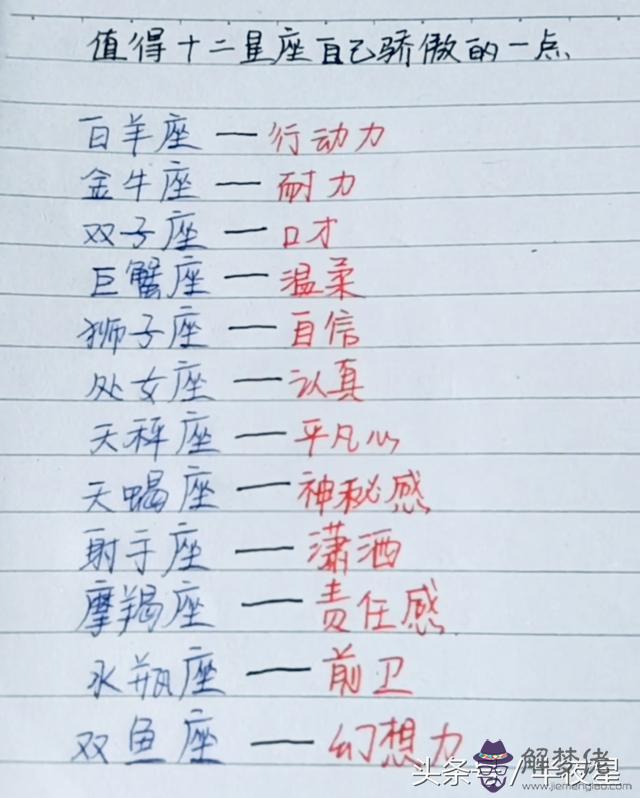 值得十二星座自己骄傲的一点
白羊座 — 行动力
金牛座 — 耐力
双子座 — 口才
巨蟹座 — 温柔
狮子座 — 自信
处女座 — 认真
天秤座 — 平凡心
天蝎座 — 神秘感
射手座 — 潇洒
摩羯座 — 责任感
水瓶座 — 前卫
双鱼座 — 幻想力
头条号 / 半夜星
解梦佬
www.jiemenglao.com